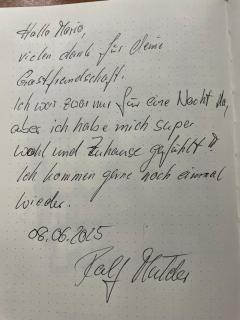 Hallo Mario,
vielen dank für Deine
Gastfreundschaft.
Ich war zwar nur für eine Nacht da,
aber ich habe mich super
wohl und Zuhause gefühlt!!
Ich kommen gerne noch einmal
wieder.
08.06.2025
Ralf